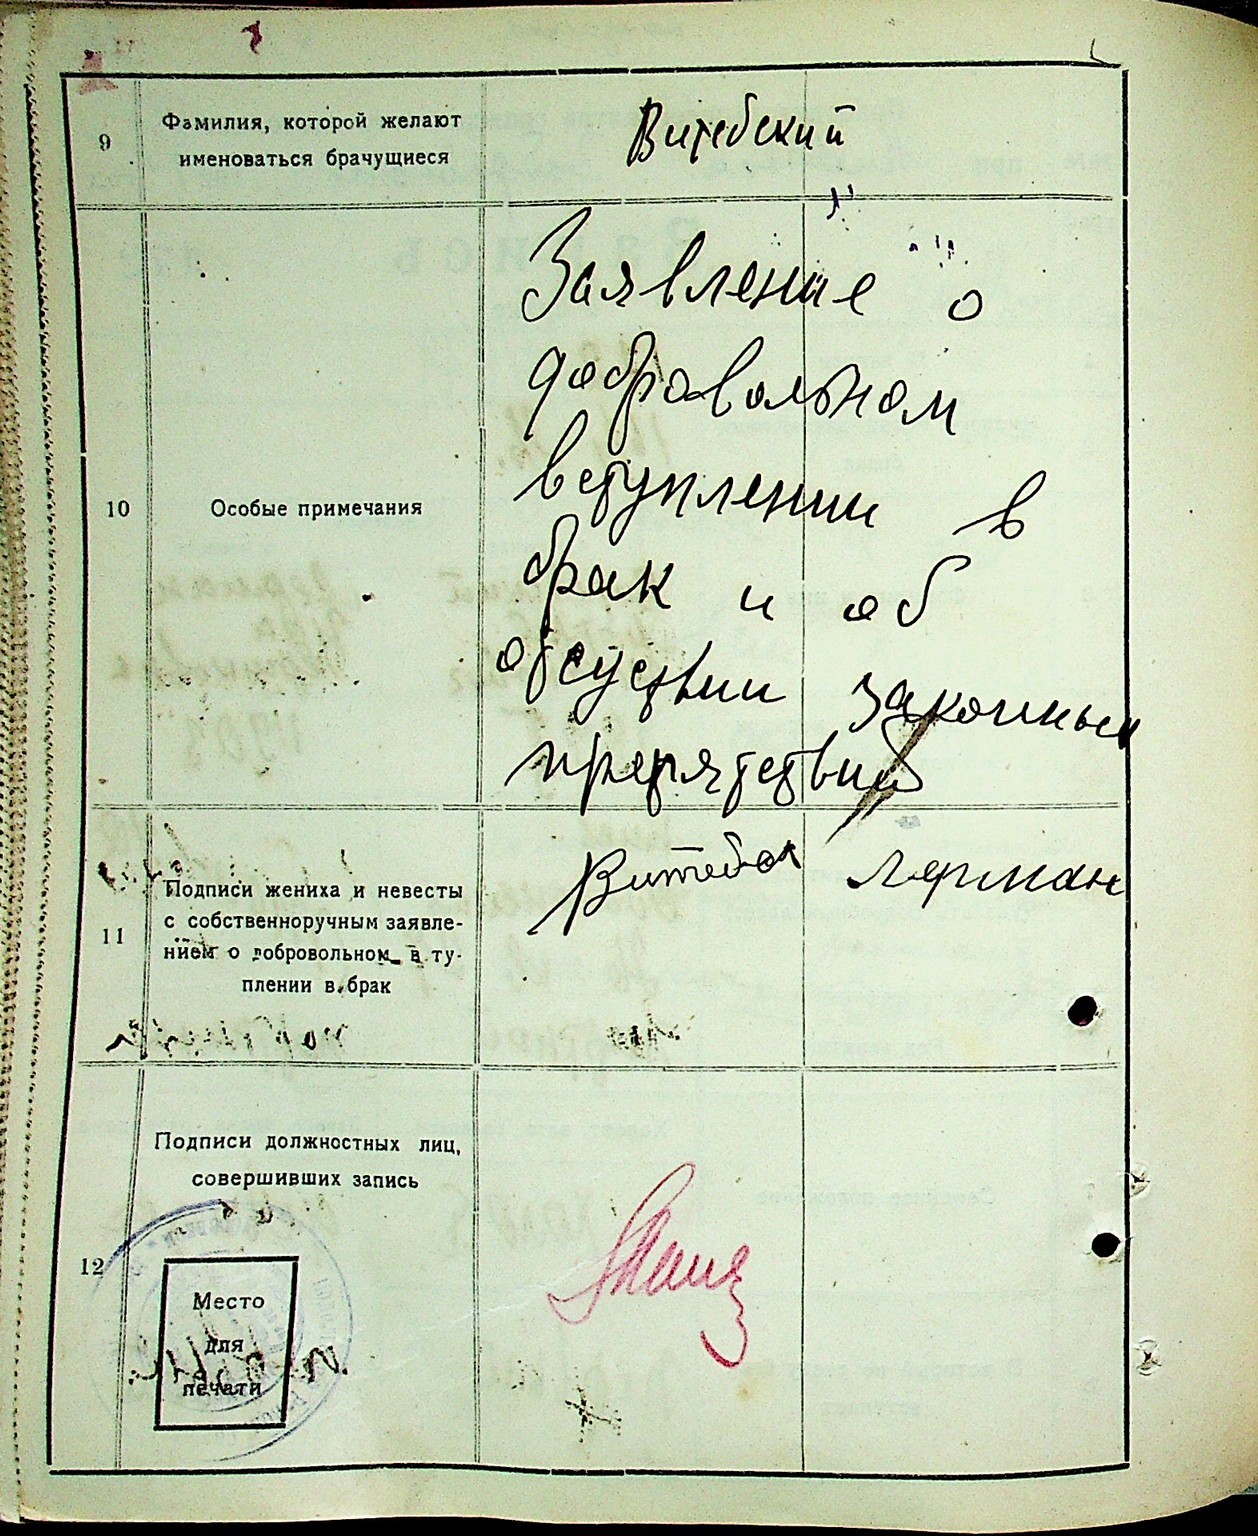 9
Фамилия, которой желают
именоваться брачущиеся
Витебский
10
Особые примечания
Заявление о
добровольном
вступлении в
брак и об
отсуствии законных
препятствий
11
Подписи жениха и невесты
с собственноручным заявле-
нием о добровольном в ту-
плении в брак
Лерман
12
Подписи должностных лиц,
совершивших запись
Место
для
печати